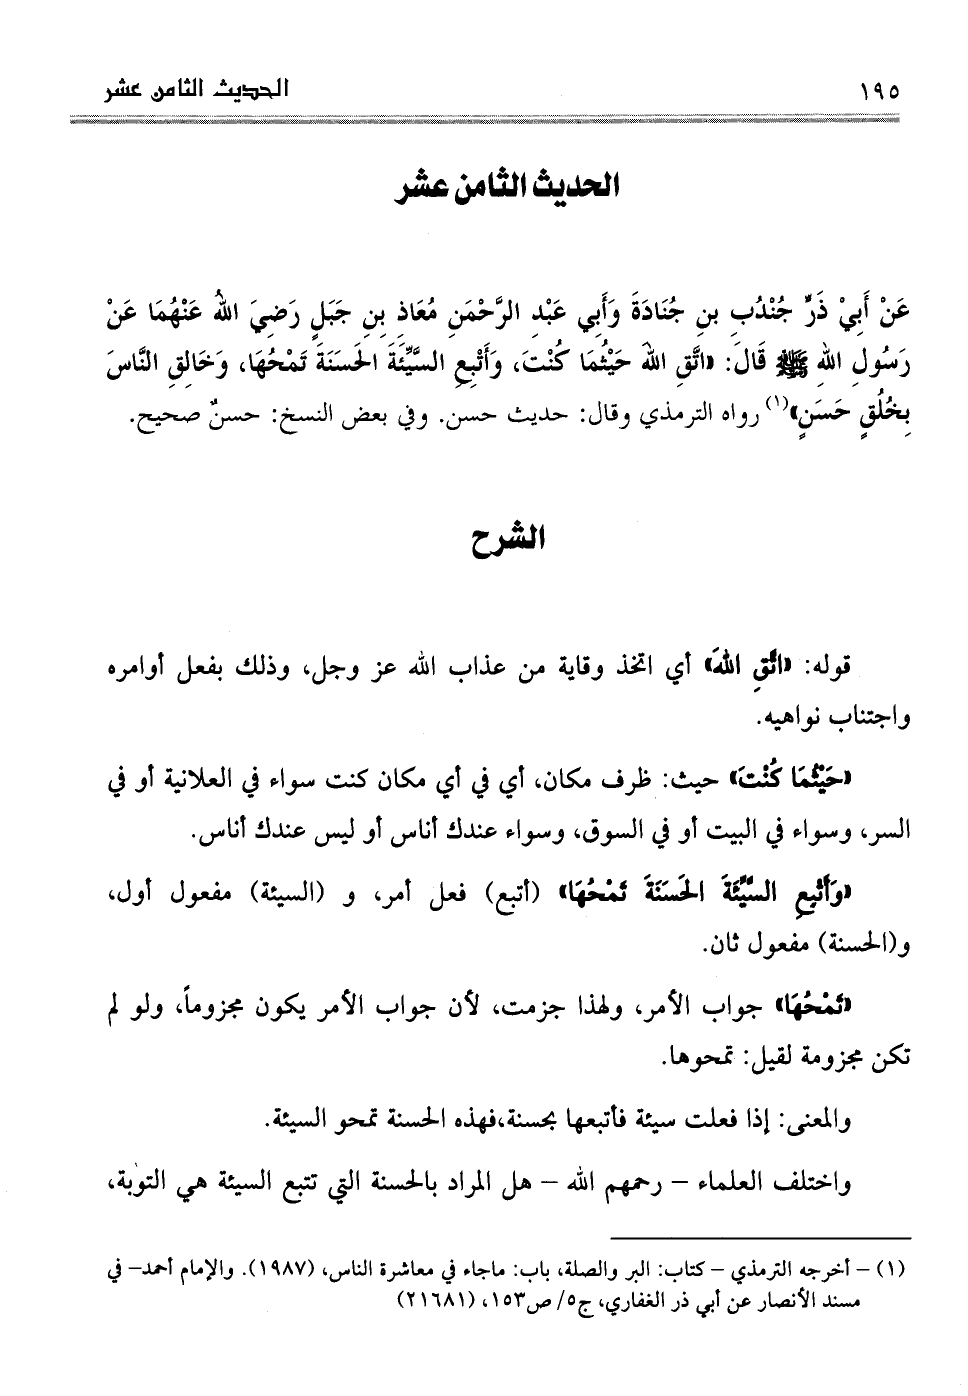 ١٩٥ الحديث الثامن عشر
الحديث الثامن عشر
عَنْ أَبِيْ ذَرٍّ جُنْدُبِ بنِ جُنَادَةَ وَأَبِي عَبْدِ الرَّحْمَنِ مُعَاذِ بنِ جَبَلٍ رَضِيَ اللهُ عَنْهُمَا عَنْ
رَسُولِ اللهِ ﷺ قَالَ: «اتَّقِ اللهَ حَيْثُمَا كُنْتَ، وَأَتْبِعِ السَّيِّئَةَ الحَسَنَةَ تَمْحُهَا، وَخَالِقِ النَّاسَ
بِخُلُقٍ حَسَنٍ»(١) رواه الترمذي وقال: حديث حسن. وفي بعض النسخ: حسنٌ صحيح.
الشرح
قوله: «اتَّقِ اللهَ» أي اتخذ وقاية من عذاب الله عز وجل، وذلك بفعل أوامره
واجتناب نواهيه.
«حَيْثُمَا كُنْتَ» حيث: ظرف مكان، أي في أي مكان كنت سواء في العلانية أو في
السر، وسواء في البيت أو في السوق، وسواء عندك أناس أو ليس عندك أناس.
«وَأَتْبِعِ السَّيِّئَةَ الحَسَنَةَ تَمْحُهَا» (أتبع) فعل أمر، و (السيئة) مفعول أول،
و(الحسنة) مفعول ثان.
«تَمْحُهَا» جواب الأمر، ولهذا جزمت، لأن جواب الأمر يكون مجزوماً، ولو لم
تكن مجزومة لقيل: تمحوها.
والمعنى: إذا فعلت سيئة فأتبعها بحسنة،فهذه الحسنة تمحو السيئة.
واختلف العلماء – رحمهم الله – هل المراد بالحسنة التي تتبع السيئة هي التوبة،
(١) – أخرجه الترمذي – كتاب: البر والصلة، باب: ماجاء في معاشرة الناس، (١٩٨٧). والإمام أحمد– في
مسند الأنصار عن أبي ذر الغفاري، ج٥/ ص١٥٣، (٢١٦٨١)